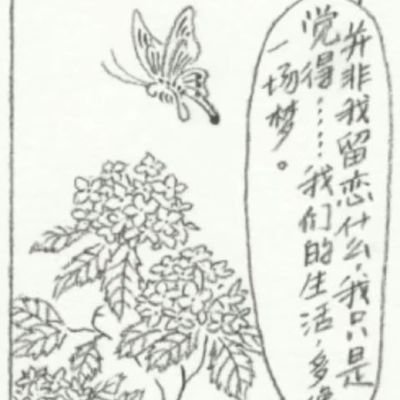 并非我留恋什么，我只是
觉得……我们的生活，多像
一场梦。